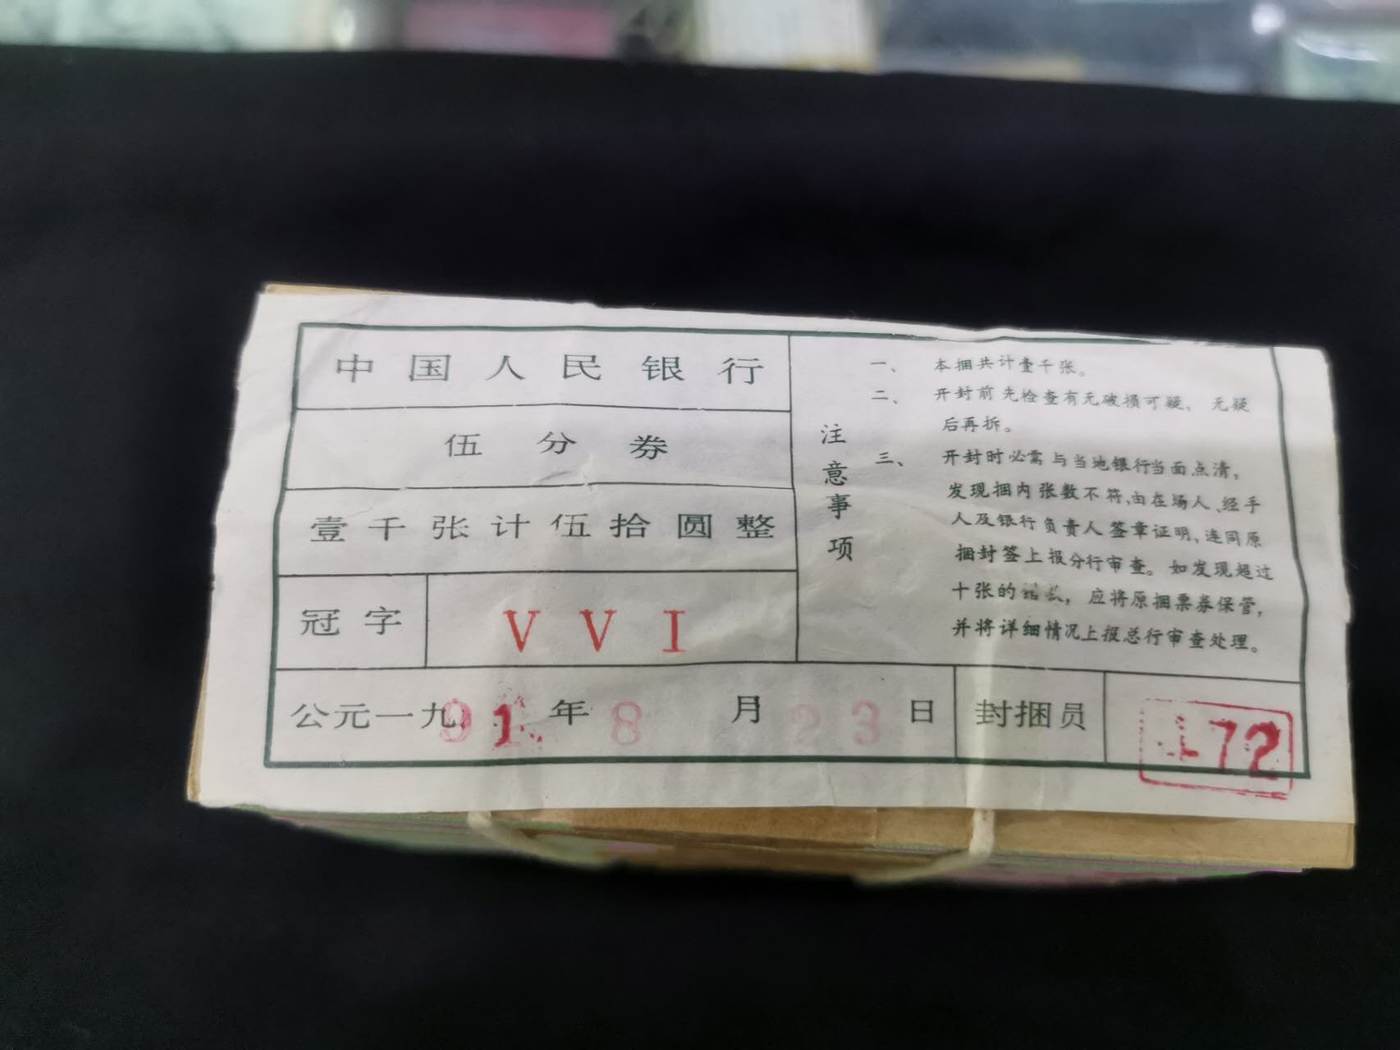 中国人民银行
伍分券
壹千张计伍拾圆整
冠字 VVI
公元一九91年8月23日 封捆员 72
注意事项
一、本捆共计壹千张。
二、开封前先检查有无破损可疑，无疑
后再拆。
三、开封时必需与当地银行当面点清，
发现捆内张数不符、由在场人、经手
人及银行负责人签章证明，连同原
捆封签上报分行审查。如发现超过
十张的，应将原捆票券保管，
并将详细情况上报总行审查处理。